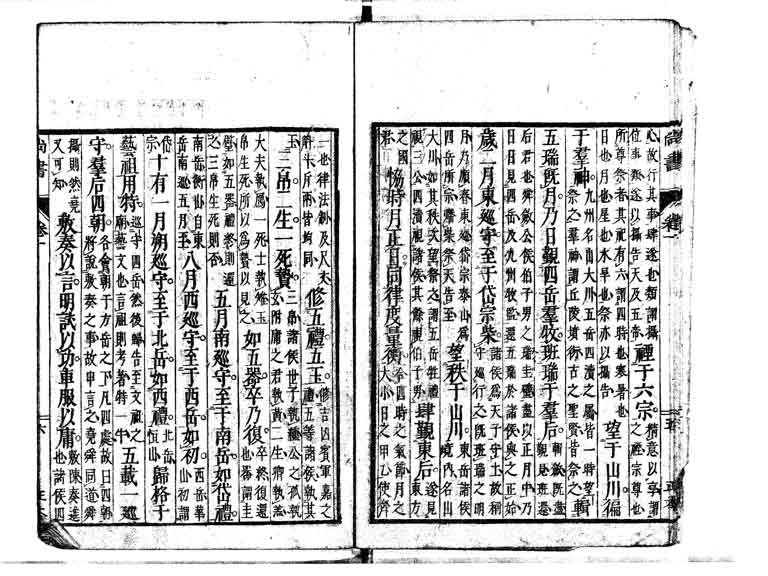 尚書 卷一 五
心故行其事肆遂也類謂攝
位事類遂以攝告天及五帝禋于六宗精意以享謂
之禋宗尊也
所尊祭者其祀有六謂四時也寒暑也
日也月也星也水旱也祭亦以攝告望于山川徧
于羣神九州名山大川五岳四瀆之屬皆一時望
祭之羣神謂丘陵墳衍古之聖賢皆祭之輯
五瑞旣月乃日覲四岳羣牧班瑞于羣后輯斂旣盡
覲見班還
后君也舜斂公侯伯子男之瑞圭璧盡以正月中乃
日日見四岳及九州牧監還五瑞於諸侯與之正始
歲二月東巡守至于岱宗柴諸侯爲天子守土故稱
守巡行之旣班瑞之明
月乃順春東巡岱宗泰山爲
四岳所宗燔柴祭天告至望秩于山川東岳諸侯
境內名山
大川如其秩次望祭之謂五岳牲禮
視三公四瀆視諸侯其餘視伯子男肆覲東后遂見
東方
之國
君協時月正日同律度量衡合四時之氣節月之
大小日之甲乙使齊
一也律法制及尺丈
斛斗斤兩皆均同修五禮五玉修吉凶賓軍嘉之
禮五等諸侯執其
玉三帛二生一死贄三帛諸侯世子執纁公之孤執
玄附庸之君執黃二生卿執羔
大夫執鴈一死士執雉玉
帛生死所以爲贄以見之如五器卒乃復卒終復還
也器謂圭
璧如五器禮終則還
之三帛生死則否五月南巡守至于南岳如岱禮
南岳衡山自東
岳南巡五月至八月西巡守至于西岳如初西岳華
山初謂
岱
宗十有一月朔巡守至于北岳如西禮北岳
恒山歸格于
藝祖用特巡守四岳然後歸告至文祖之
廟藝文也言祖則考著特一牛五載一巡
守羣后四朝各會朝于方岳之下凡四處故曰四朝
將說敷奏之事故申言之堯舜同道舜
攝則然堯
又可知敷奏以言明試以功車服以庸敷陳奏進
也諸侯四
尚書 卷一 六